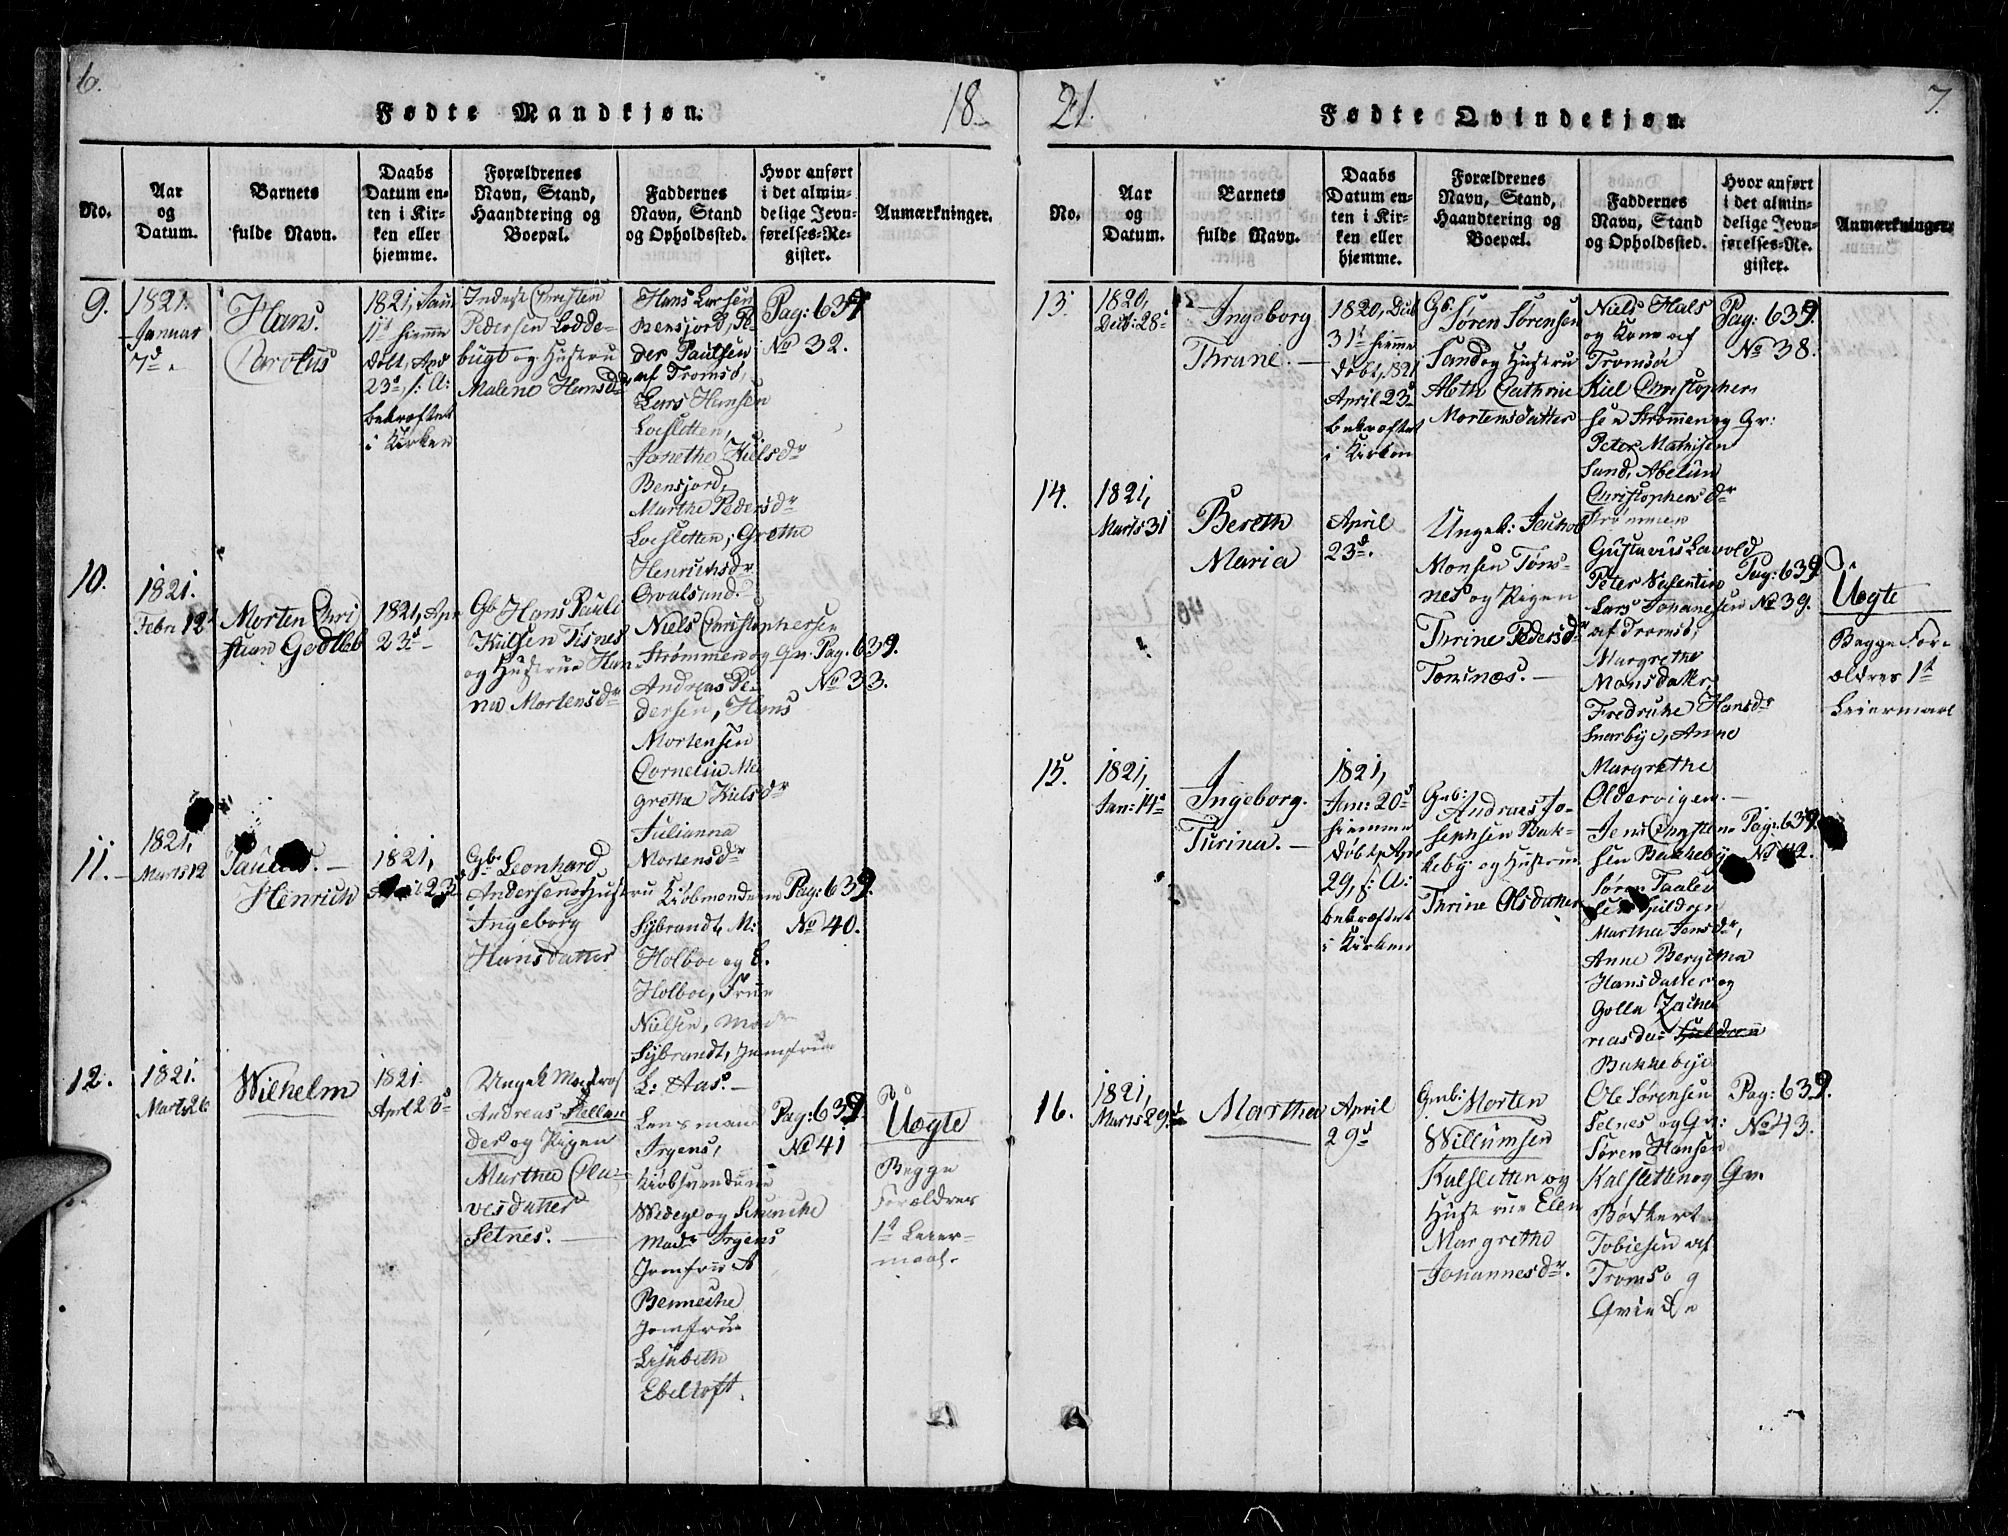 6.
Fødte Mandkjøn.
18
No.
Aar
og
Datum.
Barnets
fulde Navn.
Daabs
Datum en-
ten i Kir-
ken eller
hjemme.
Forældrenes
Navn, Stand,
Haandtering og
Boepæl.
Faddernes
Navn, Stand
og Opholdssted.
Hvor anført
i det almin-
delige Jevn-
førelses-Re-
gister.
Anmærkninger.
9.
1821.
Januar
7d.
Hans.
Carolus
1821, Jan
11t hiemme
døbt, Apr
23d, s: A:
bekræftet
i Kirken
Christen
Pedersen Lodde-
bugt og Hustrue
Malene Hansdr
Hans Larsen
Bensjord, Pe
der Paulsen
af Tromsø,
Lars Hansen
Loesletten,
Janethe Kielsdr
Bensjord,
Marthe Pedersdr
Loesletten, Grethe
Henrichsdr
Qvalsund.
Pag: 639
No 32.
10.
1821.
Febr: 12t
Morten Chri
stian Gotlieb
1821, Apr
23d
Gb Hans Pauli
Kielsen Tisnes
og Hustrue Han
na Mortensdr
Niels Christophersen
Strømmen og Qv.
Andreas Pe-
dersen, Hans
Mortensen
Cornelia Ma
grethe Kielsdr
Julianna
Mortensdr
Pag. 639.
No 33.
11.
1821,
Marts 12
Paulus.
Henrich
1821,
April 23d
Gb. Leonhard
Andersen og Hust
ru
Ingeborg
Hansdatter
Kiøbmændene
Sybrandt, M:
Holboe og E.
Holboe, Frue
Nielsen, Mad
Sybrandt, Jomfrue
L: Aas.
Pag: 639.
No 40.
12.
1821.
Marts 26
Wilhelm
1821.
Apr 23d
Ungek Matros
Andreas
der og Pigen
Martha Cla-
vesdatter
Selnes.
Lensmand
Irgens,
Kiøbsvendene
Wedege og
Madr Irgens
Jomfrue A
Benneche
Jomfrue
Lisabeth
Ebeltoft.
Pag: 639
No 41
Uægte
Begge
Forældres
1t Leier-
maal.
21.
Fødte Qvindekjøn.
7.
No.
Aar
og
Datum.
Barnets
fulde Navn.
Daabs
Datum en-
ten i Kir-
ken eller
hjemme.
Forældrenes
Navn, Stand,
Haandtering og
Boepæl.
Faddernes
Navn, Stand
og Opholdssted.
Hvor anført
i det almin-
delige Jevn-
førelses-Re-
gister.
Anmærkninger.
13.
1820,
Decb: 28d
Ingeborg
Thrane.
1820, Decb
31t hiemme
døbt, 1821
April 23d
bekræftet
i Kirken
Gb.
Søren Sørensen
Sand og Hustrue
Abeth Cathrine
Mortensdatter
Niels Hals
og Kone af
Tromsø
Kiel Christopher
sen Strømmen og Qv:
Peter Mathisen
Sand, Abelun
Christophersdr
Strømmen
Pag: 639.
No 38.
14.
1821,
Marts 31
Bereth
Maria
April
23d.
Ungek: Jachob
Monsen Tøns-
nes og Pigen
Thrine Pedersdr
Tønsnæs.
Gustavus Lavold
Peter Valentin
Lars Johannesen
af Tromsø,
Margrethe
Monsdatter
Fredrikke Hansdr
Snarbye, Anne
Margrethe
Oldervigen.
Pag: 639
No 39.
Uægte
Begge For-
ældres 1t
Leiermaal
15.
1821,
Jan: 14d
Ingeborg.
Turina.
1821,
Jan: 20d
hiemme
døbt, Apr
29, s: A:
bekræftet
i Kirken
Gmb:
Andreas Jo-
sephsen Bak-
keby og Hustrue
Thrine Olsdatter
Jens Christen
sen Bakkeby
Søren Taale
sen Spildren
Martha Jensdr,
Anne Bergitha
Hansdatter og
Golla Zacha
riasdr
Bakkebye
Pag: 639.
No 42.
16.
1821,
Marts 29d
Martha
April
29d
Gmb: Morten
Willumsen
Kalsletten og
Hustrue Elen
Margrethe
Johannesdr.
Ole Sørensen
Selnes og Qv:
Søren Hansen
Kalsletten og Qv.
Bødkert
Tobiesen af
Tromsø og
Qvinde
Pag: 639.
No 43.